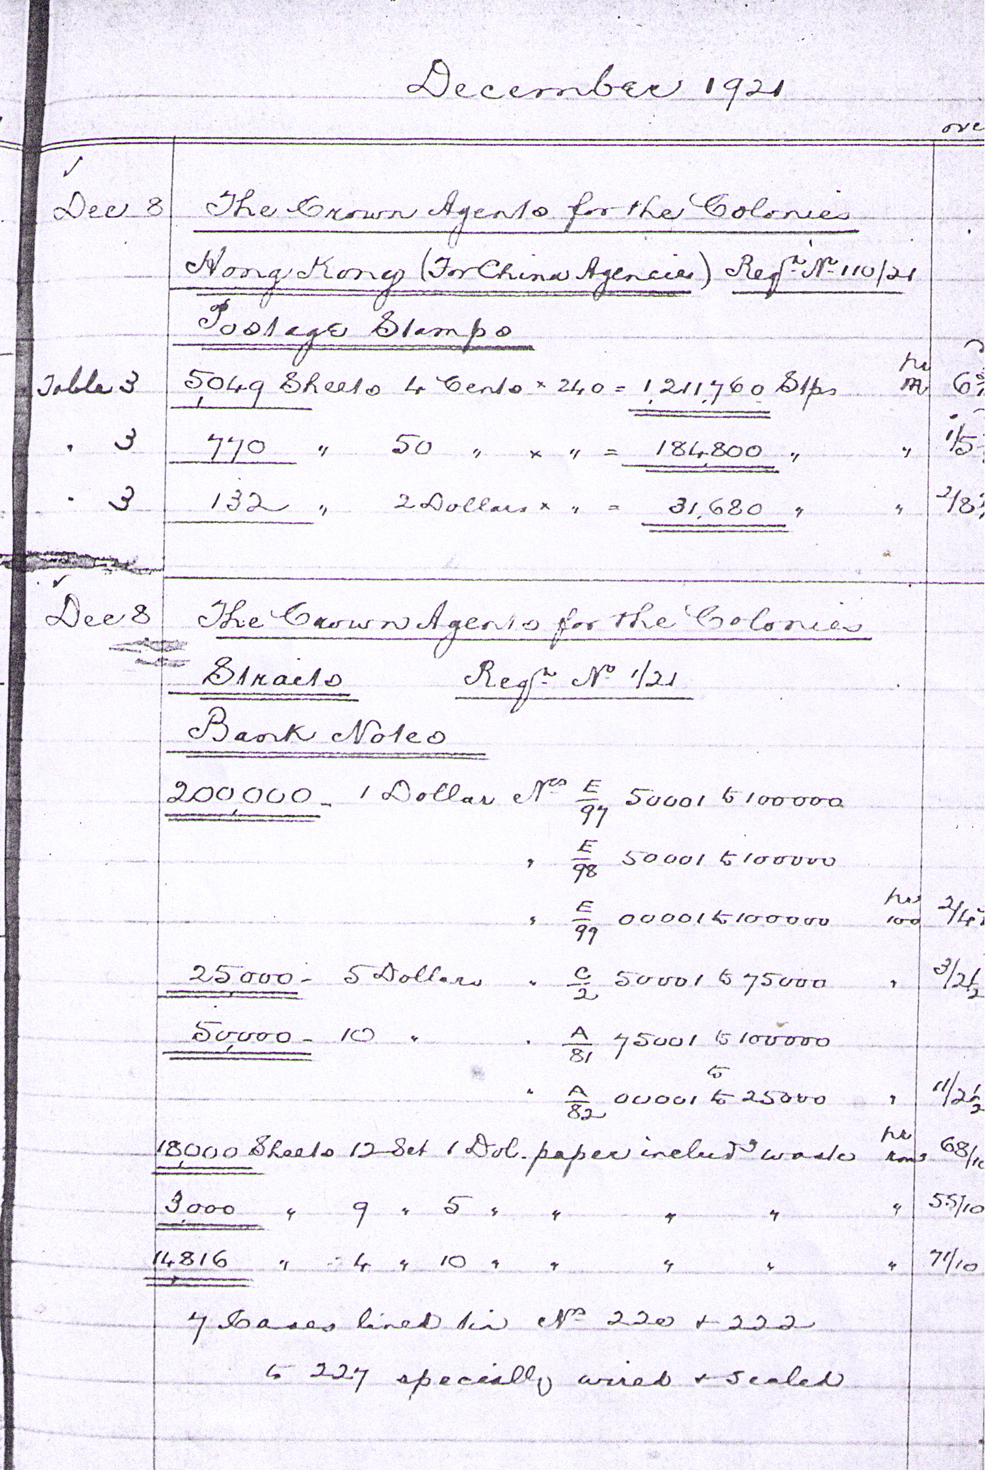 December 1921
Dec 8 The Crown Agents for the Colonies
Hong Kong (For China Agencies) Regn No 110/21
Postage Stamps
Table 3 5049 Sheets 4 Cents × 240 = 1,211,760 Stps pr M
" 3 770 " 50 " × " = 184,800 " " 1/5
" 3 132 " 2 Dollars × " = 31,680 " " 2/8
Dec 8 The Crown Agents for the Colonies
Straits Regn No 1/21
Bank Notes
200,000 - 1 Dollar Nos E/97 50001 to 100000
" E/98 50001 to 100000
" E/99 00001 to 100000 pr 100
25,000 - 5 Dollars " C/2 50001 to 75000 " 3/2½
50,000 - 10 " " A/81 75001 to 100000
" A/82 00001 to to 25000 " 11/2½
18,000 Sheets 12 Set 1 Dol. paper includg waste pr 68/10
3,000 " 9 " 5 " " " " " 55/10
14,816 " 4 " 10 " " " " " 71/10
7 Cases lined tin Nos 220 + 222
to 227 specially wired + sealed